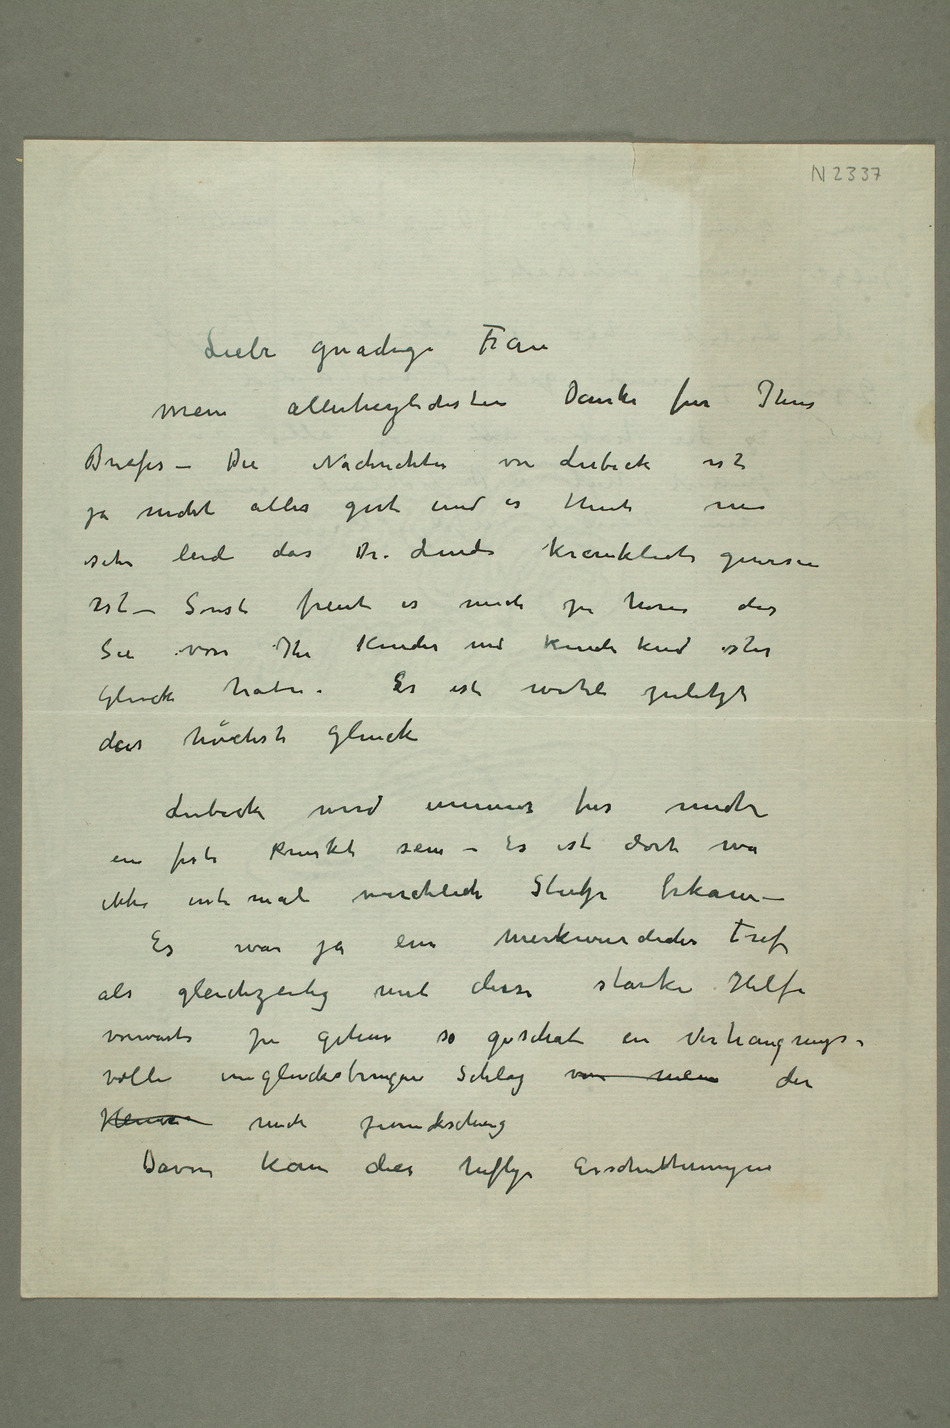 N 2337
Liebe gnadige Frau
mein allerherzlichsten Danke fur Ihres
Briefes – Die Nachrichten von Lubeck ist
ja nicht alles gut und es thut mir
sehr leid das Dr. Linde kranklich gewesen
ist – Sonst freut es mich zu horen das
Sie von Ihr Kinder und Kinderkind
Gluck haben. Es ist wohl zuletzt
das höchste Gluck
Lubeck wird immer fur mich
ein feste Punkt sein – Es ist dort wo
ich mal wirckliche Stutze bekam –
Es war ja ein merkwurdiches Tref
als gleichzeitig mit diese starke Hilfe
vorwarts zu gehen so geschah ein Verhangnys-
volle unglucksbringen Schlag von mein der
mich zuruckschlug
Davon kam die heftige Erschutterungen